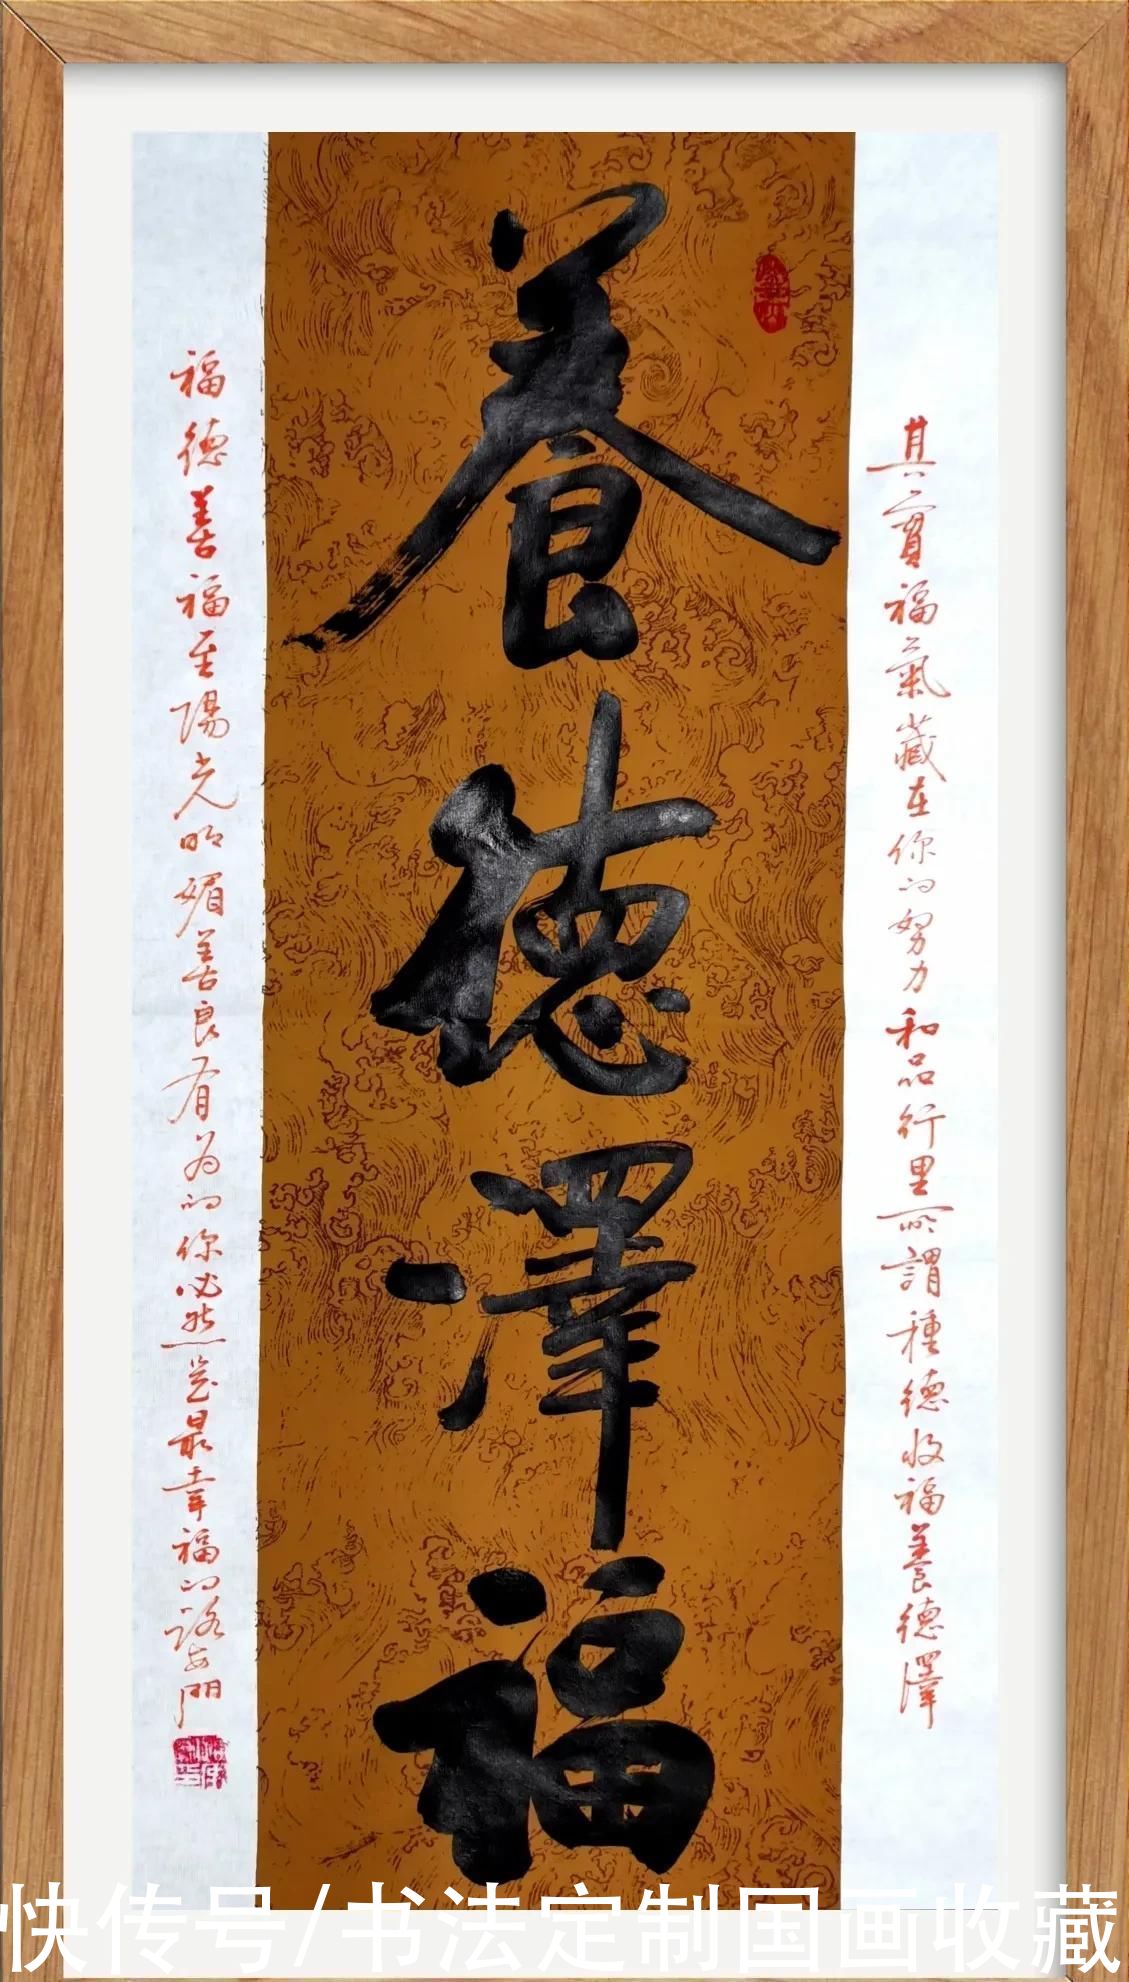 養德澤福
其實福氣藏在你的努力和品行里所謂種德收福養德澤
福德善福至陽光明媚善良有为的你必然是最幸福的安門
快传号/书法定制国画收藏